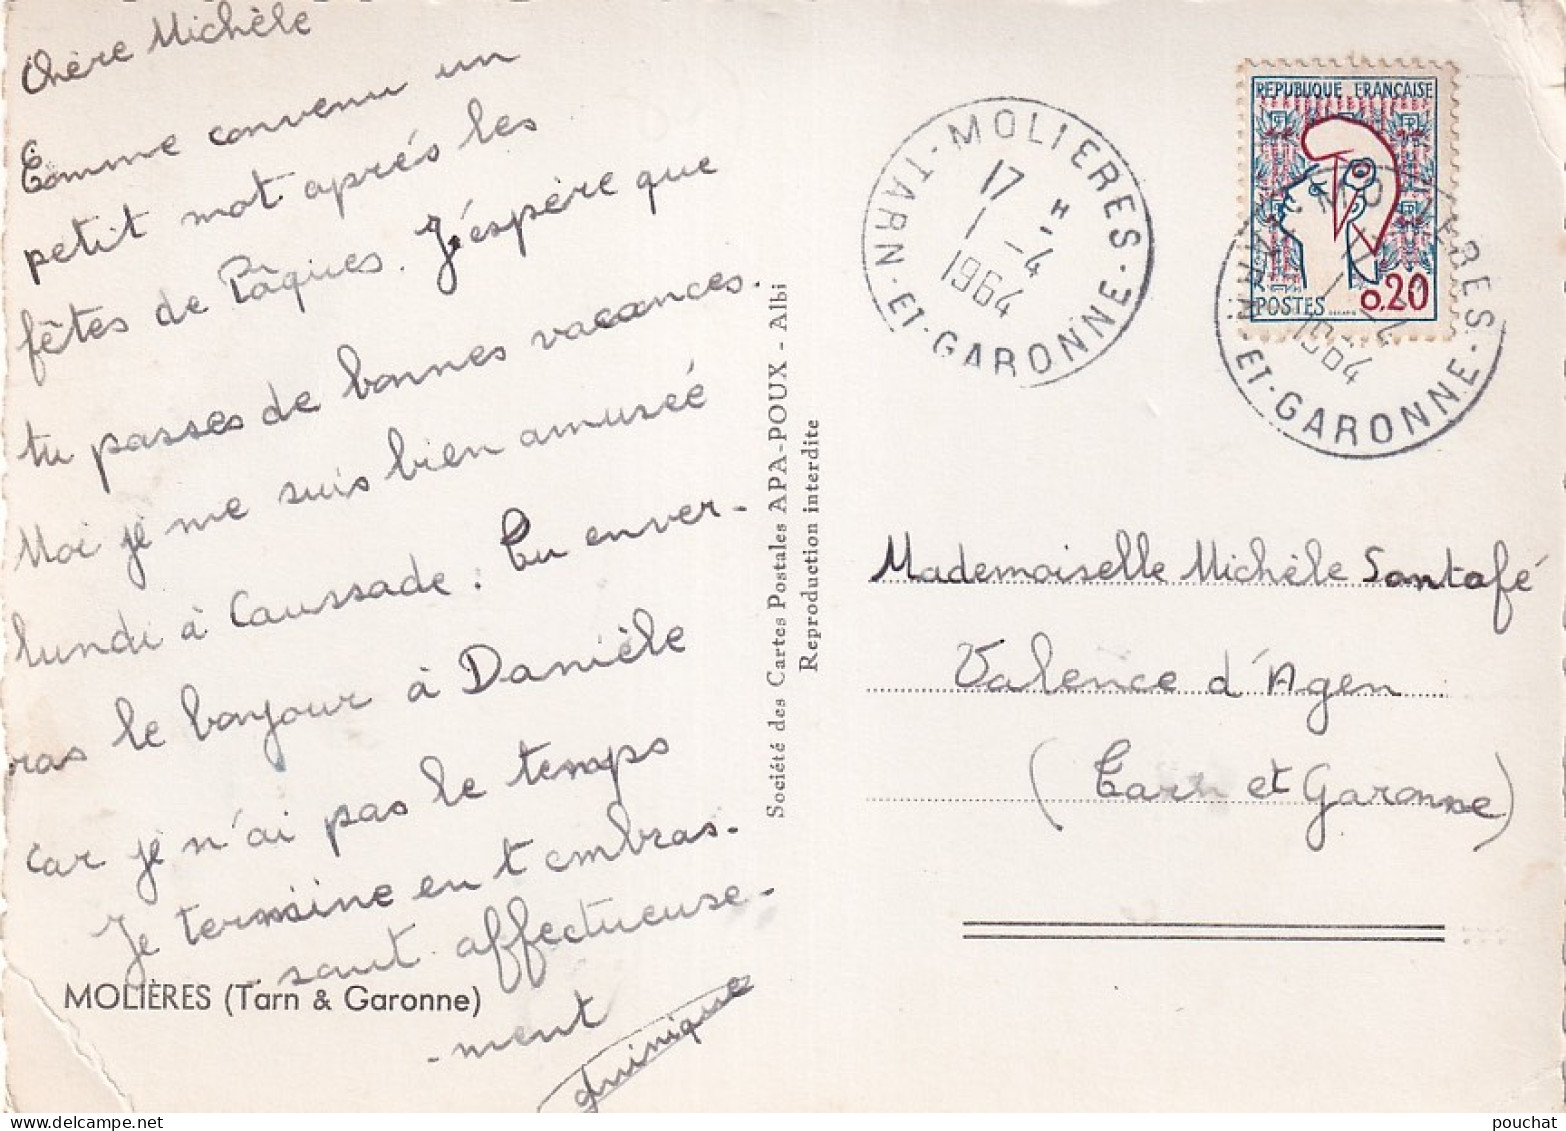 Chère Michèle
Comme convenu un
petit mot après les
fêtes de Pâques. J'éspère que
tu passes de bonnes vacances.
Moi je me suis bien amusée
lundi à Caussade. Tu enver-
ras le bonjour à Danièle
car je n'ai pas le temps
Je termine en t'embras-
sant affectueuse-
-ment
MOLIÈRES (Tarn & Garonne)
Société des Cartes Postales APA-POUX - Albi
Reproduction interdite
MOLIERES
TARN-ET-GARONNE
17 H
1-4
1964
REPUBLIQUE FRANÇAISE
POSTES
0,20
MOLIERES
TARN-ET-GARONNE
1964
Mademoiselle Michèle Santafé
Valence d'Agen
(Tarn et Garonne)
pouchat